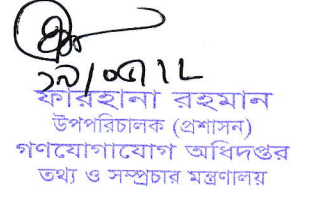 ফারহানা রহমান
উপপরিচালক (প্রশাসন)
গণযোগাযোগ অধিদপ্তর
তথ্য ও সম্প্রচার মন্ত্রণালয়